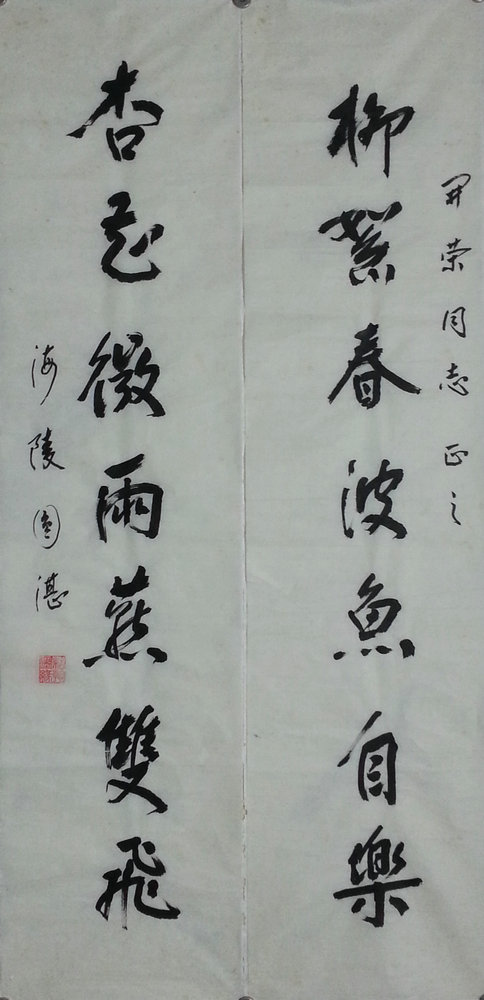 开荣同志正之
柳絮春波魚自樂
杏花微雨燕雙飛
海陵圆湛